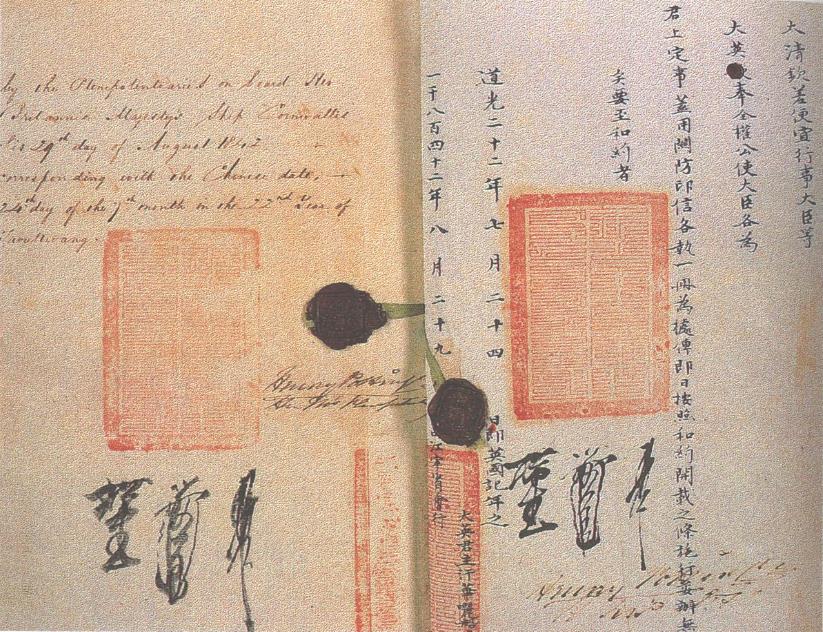 by the Plenipotentiaries on board Her
Britannic Majesty's Ship Cornwallis
this 29th day of August 1842
corresponding with the Chinese date,
24th day of the 7th month in the 22nd Year of
Taoukwang.
Henry Potting
大清欽差便宜行事大臣等
大英 奉全權公使大臣各為
君上定事蓋用關防印信各執一冊為據俾即日按照和約開載之條施行妥辦無
矣要至和約者
道光二十二年七月二十四日即英國記年之
一千八百四十二年八月二十九
大英君主汗華
Henry Potting